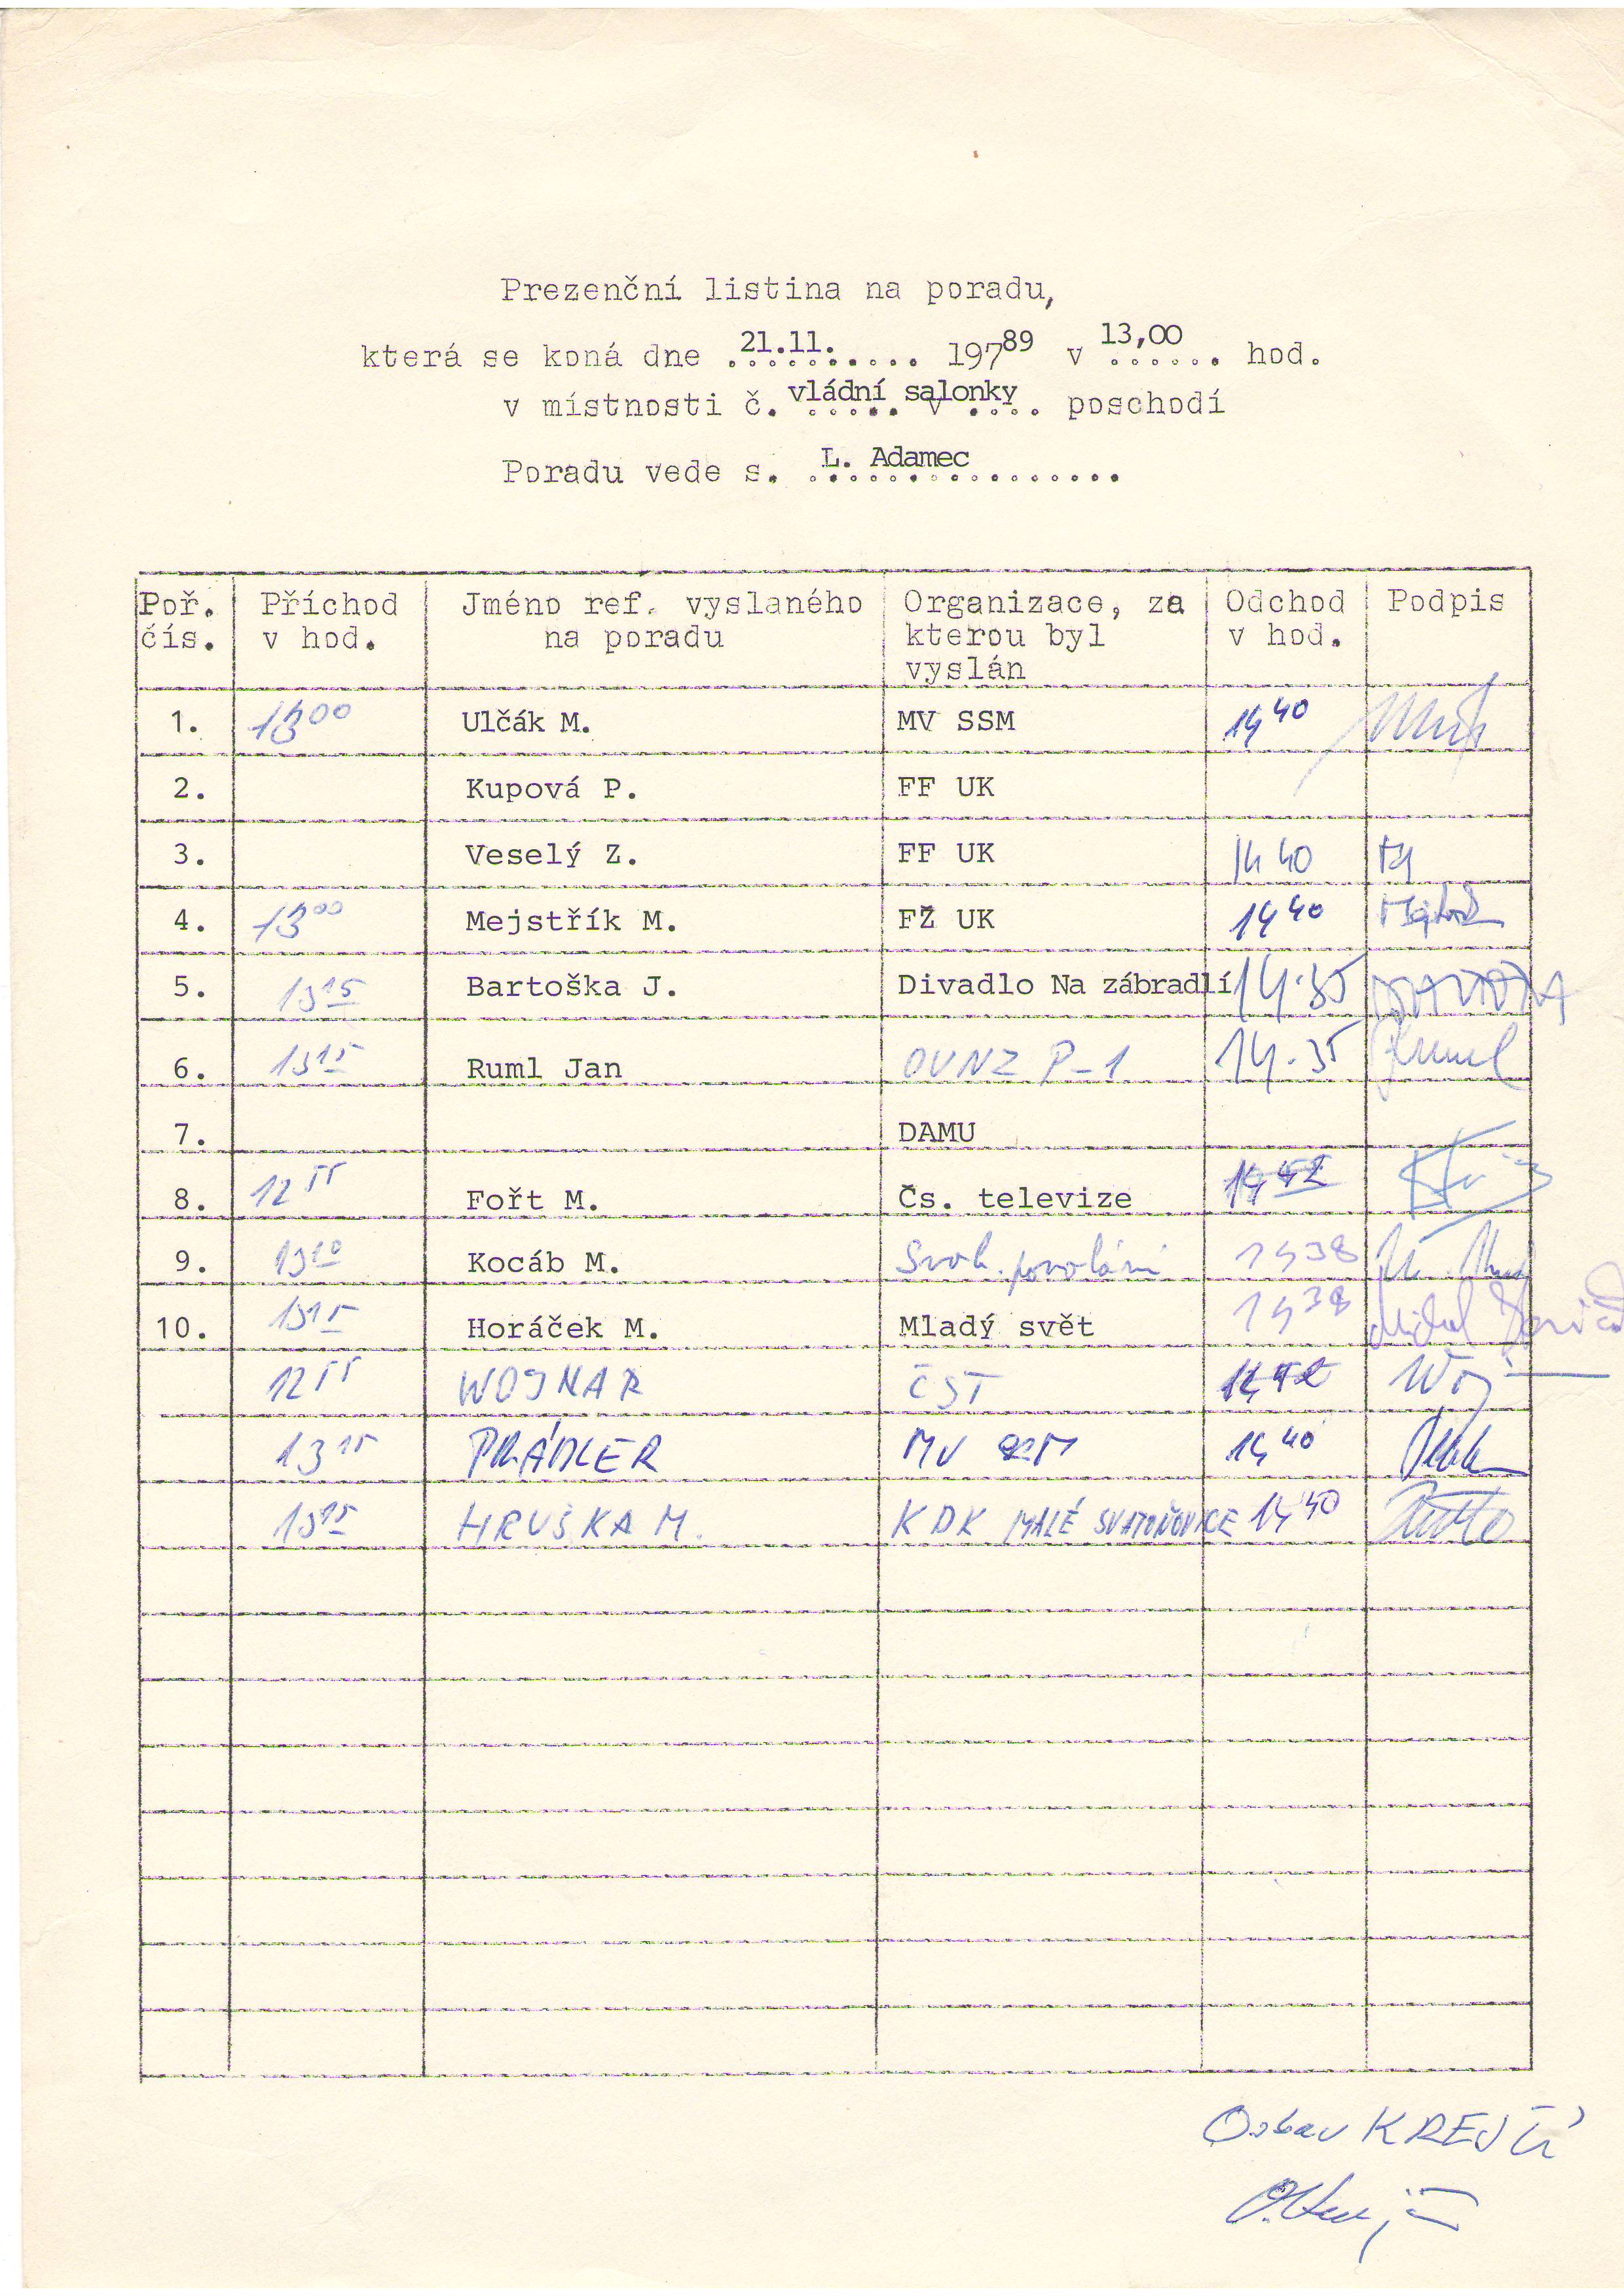 Prezenční listina na poradu,
která se koná dne 21.11. 19789 v 13,00 hod.
v místnosti č. vládní salonky v .... poschodí
Poradu vede s. L. Adamec
Poř. čís. Příchod v hod. Jméno ref. vyslaného na poradu Organizace, za kterou byl vyslán Odchod v hod. Podpis
1. 13 00 Ulčák M. MV SSM 14 40
2. Kupová P. FF UK
3. Veselý Z. FF UK 14 40
4. 13 00 Mejstřík M. FŽ UK 14 40
5. 13 15 Bartoška J. Divadlo Na zábradlí 14.35
6. 13 15 Ruml Jan OVNZ P-1 14.35 Ruml
7. DAMU
8. 12 55 Fořt M. Čs. televize 14 42
9. 13 10 Kocáb M. Svob. povolání 14 38
10. 13 15 Horáček M. Mladý svět 14 38 Michal Horáček
12 55 WOJNAR ČST 14 42 Woj
13 15 PRÁDLER MV SSM 14 40
13 15 HRUŠKA M. KDK MALÉ SVATOŇOVICE 14 40
Oskar KREJČÍ
O. Krejčí